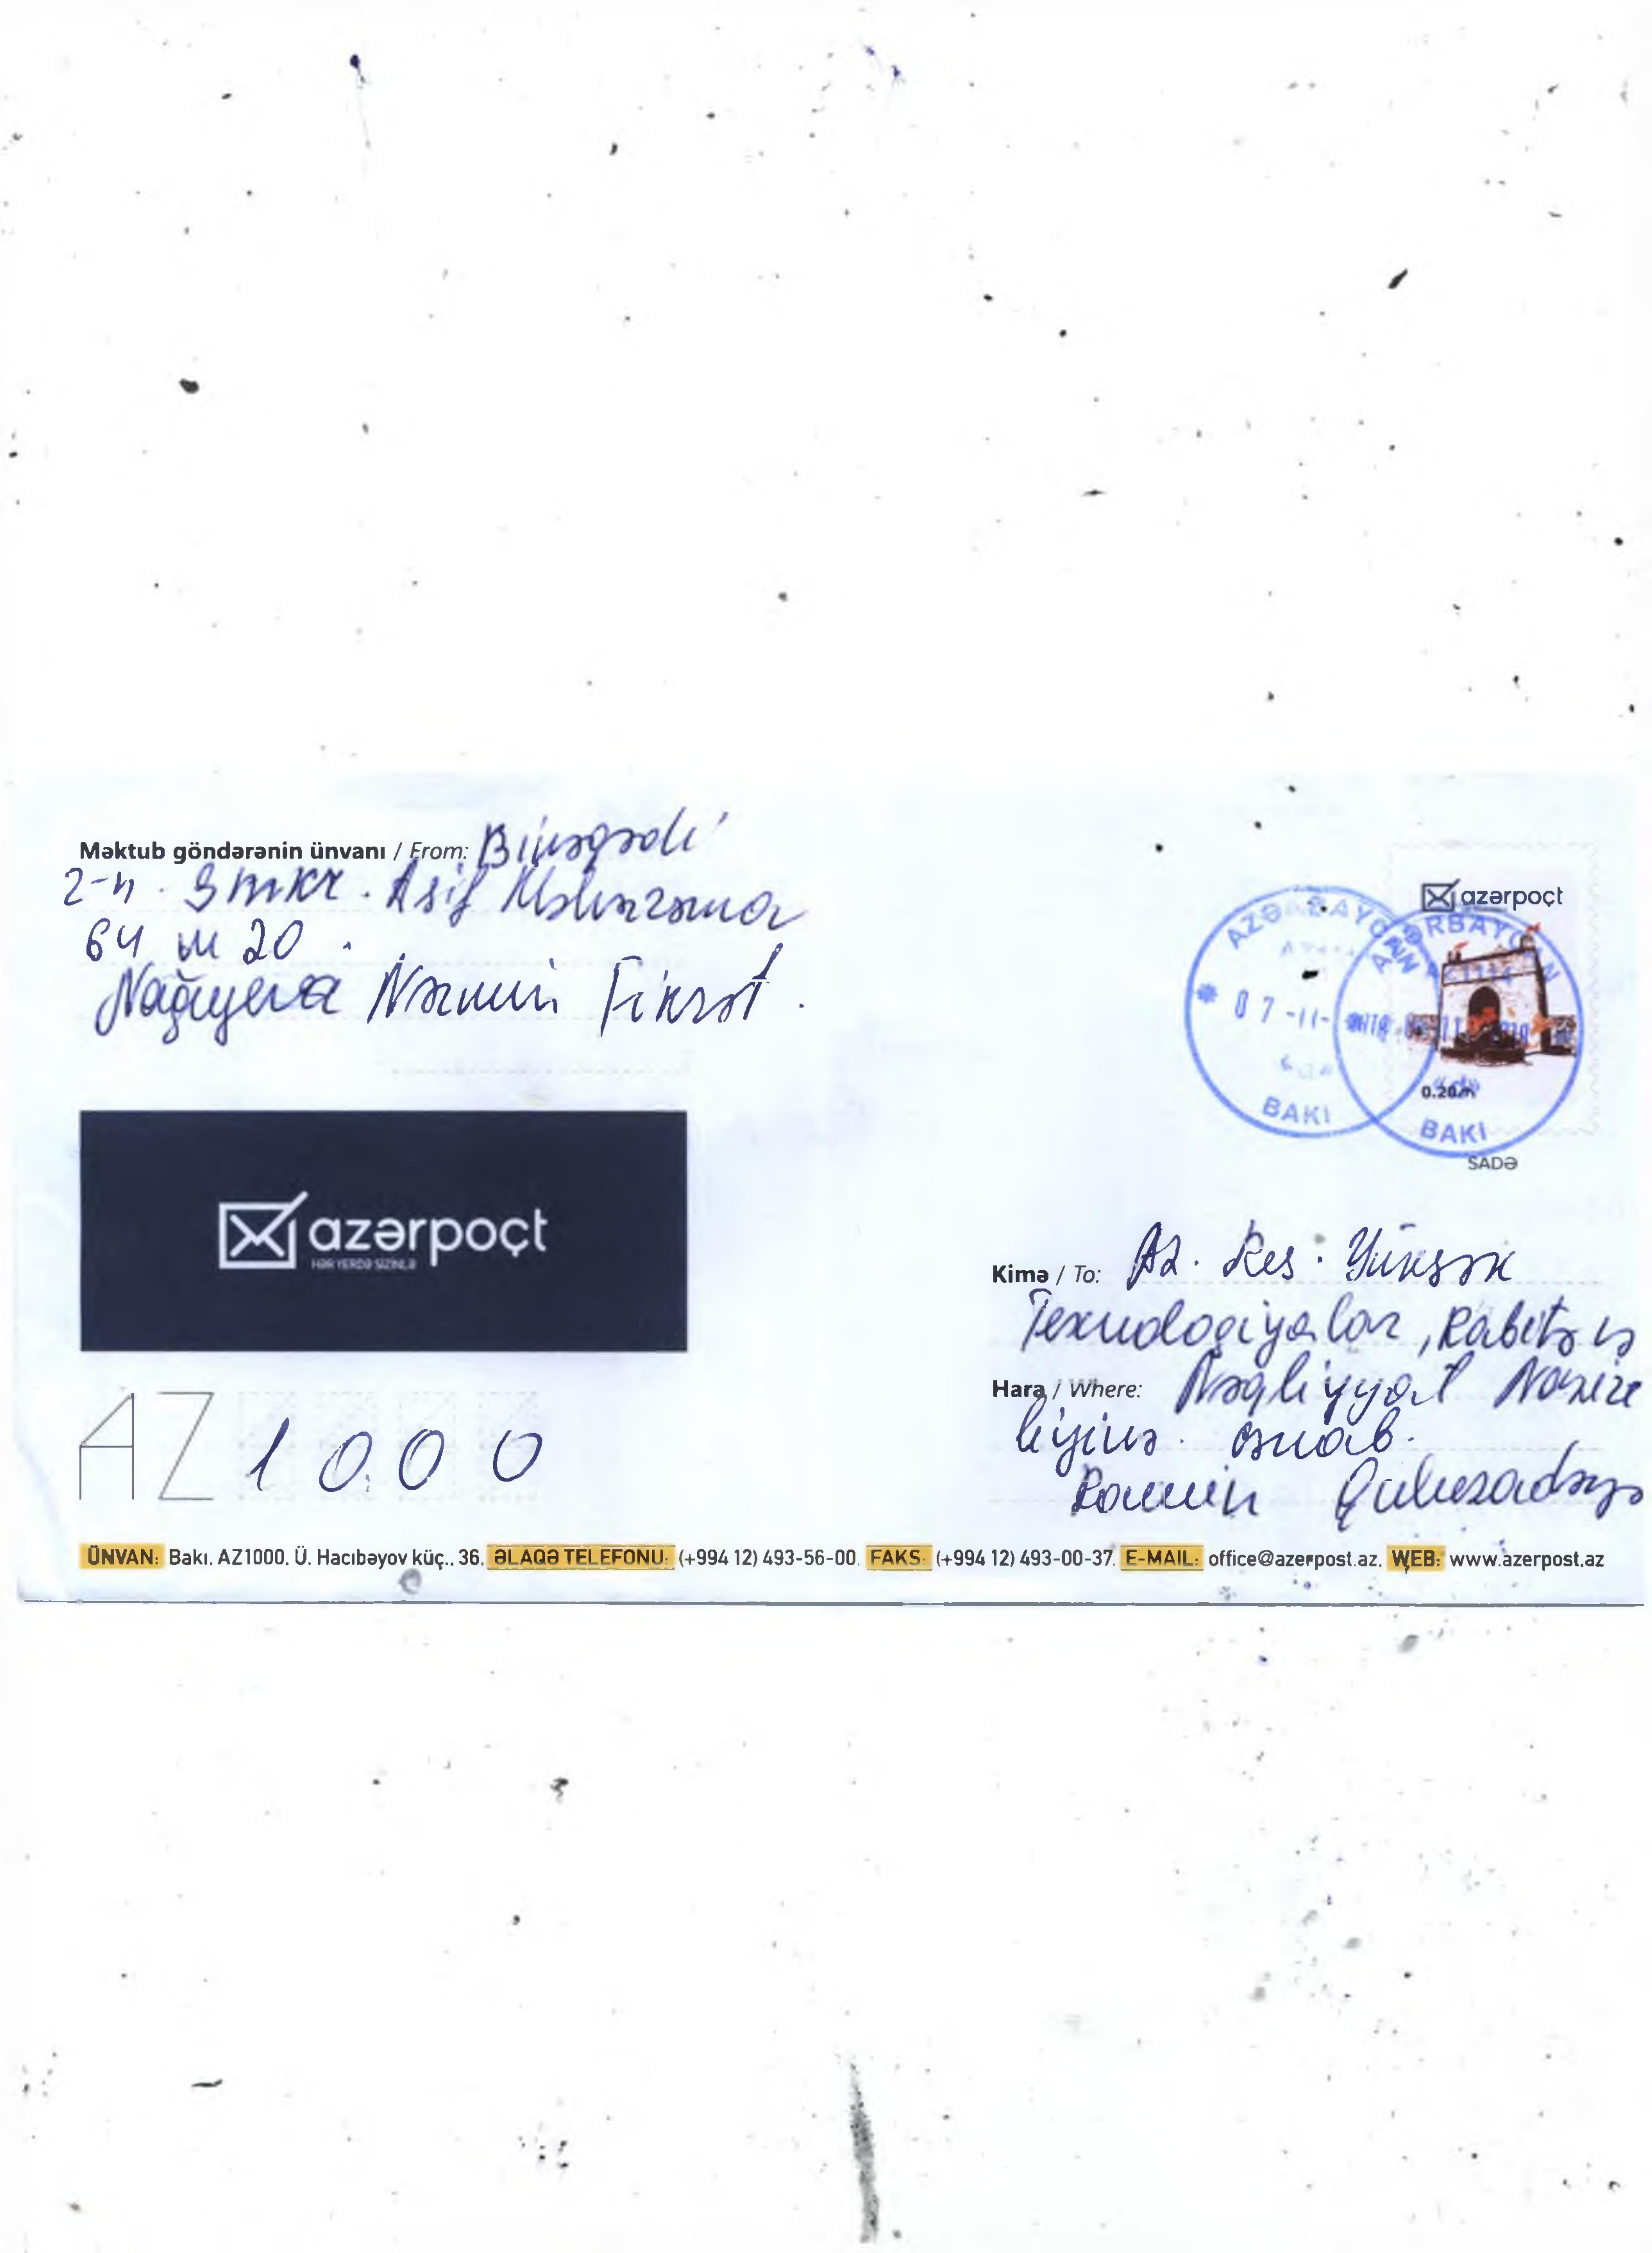 Məktub göndərənin ünvanı / From: Binəqədi
2-ci. 9 mkr. Asif Məhərrəmov
64 m 20.
Nağıyeva Nərmin Fikrət.
azərpoçt
AZƏRBAYCAN
AZƏRBAYCAN
07-11-
BAKI
0.20m
BAKI
SADƏ
azərpoçt
HƏR YERDƏ SİZİNLƏ
Kimə / To: Az. Res. Yüksək
Texnologiyalar, Rabitə və
Hara / Where: Nəqliyyat Nazir
liyinə. cənab.
Ramin Quluzadəyə
AZ 1000
ÜNVAN: Bakı. AZ1000. Ü. Hacıbəyov küç.. 36. ƏLAQƏ TELEFONU: (+994 12) 493-56-00. FAKS: (+994 12) 493-00-37. E-MAIL: office@azerpost.az. WEB: www.azerpost.az